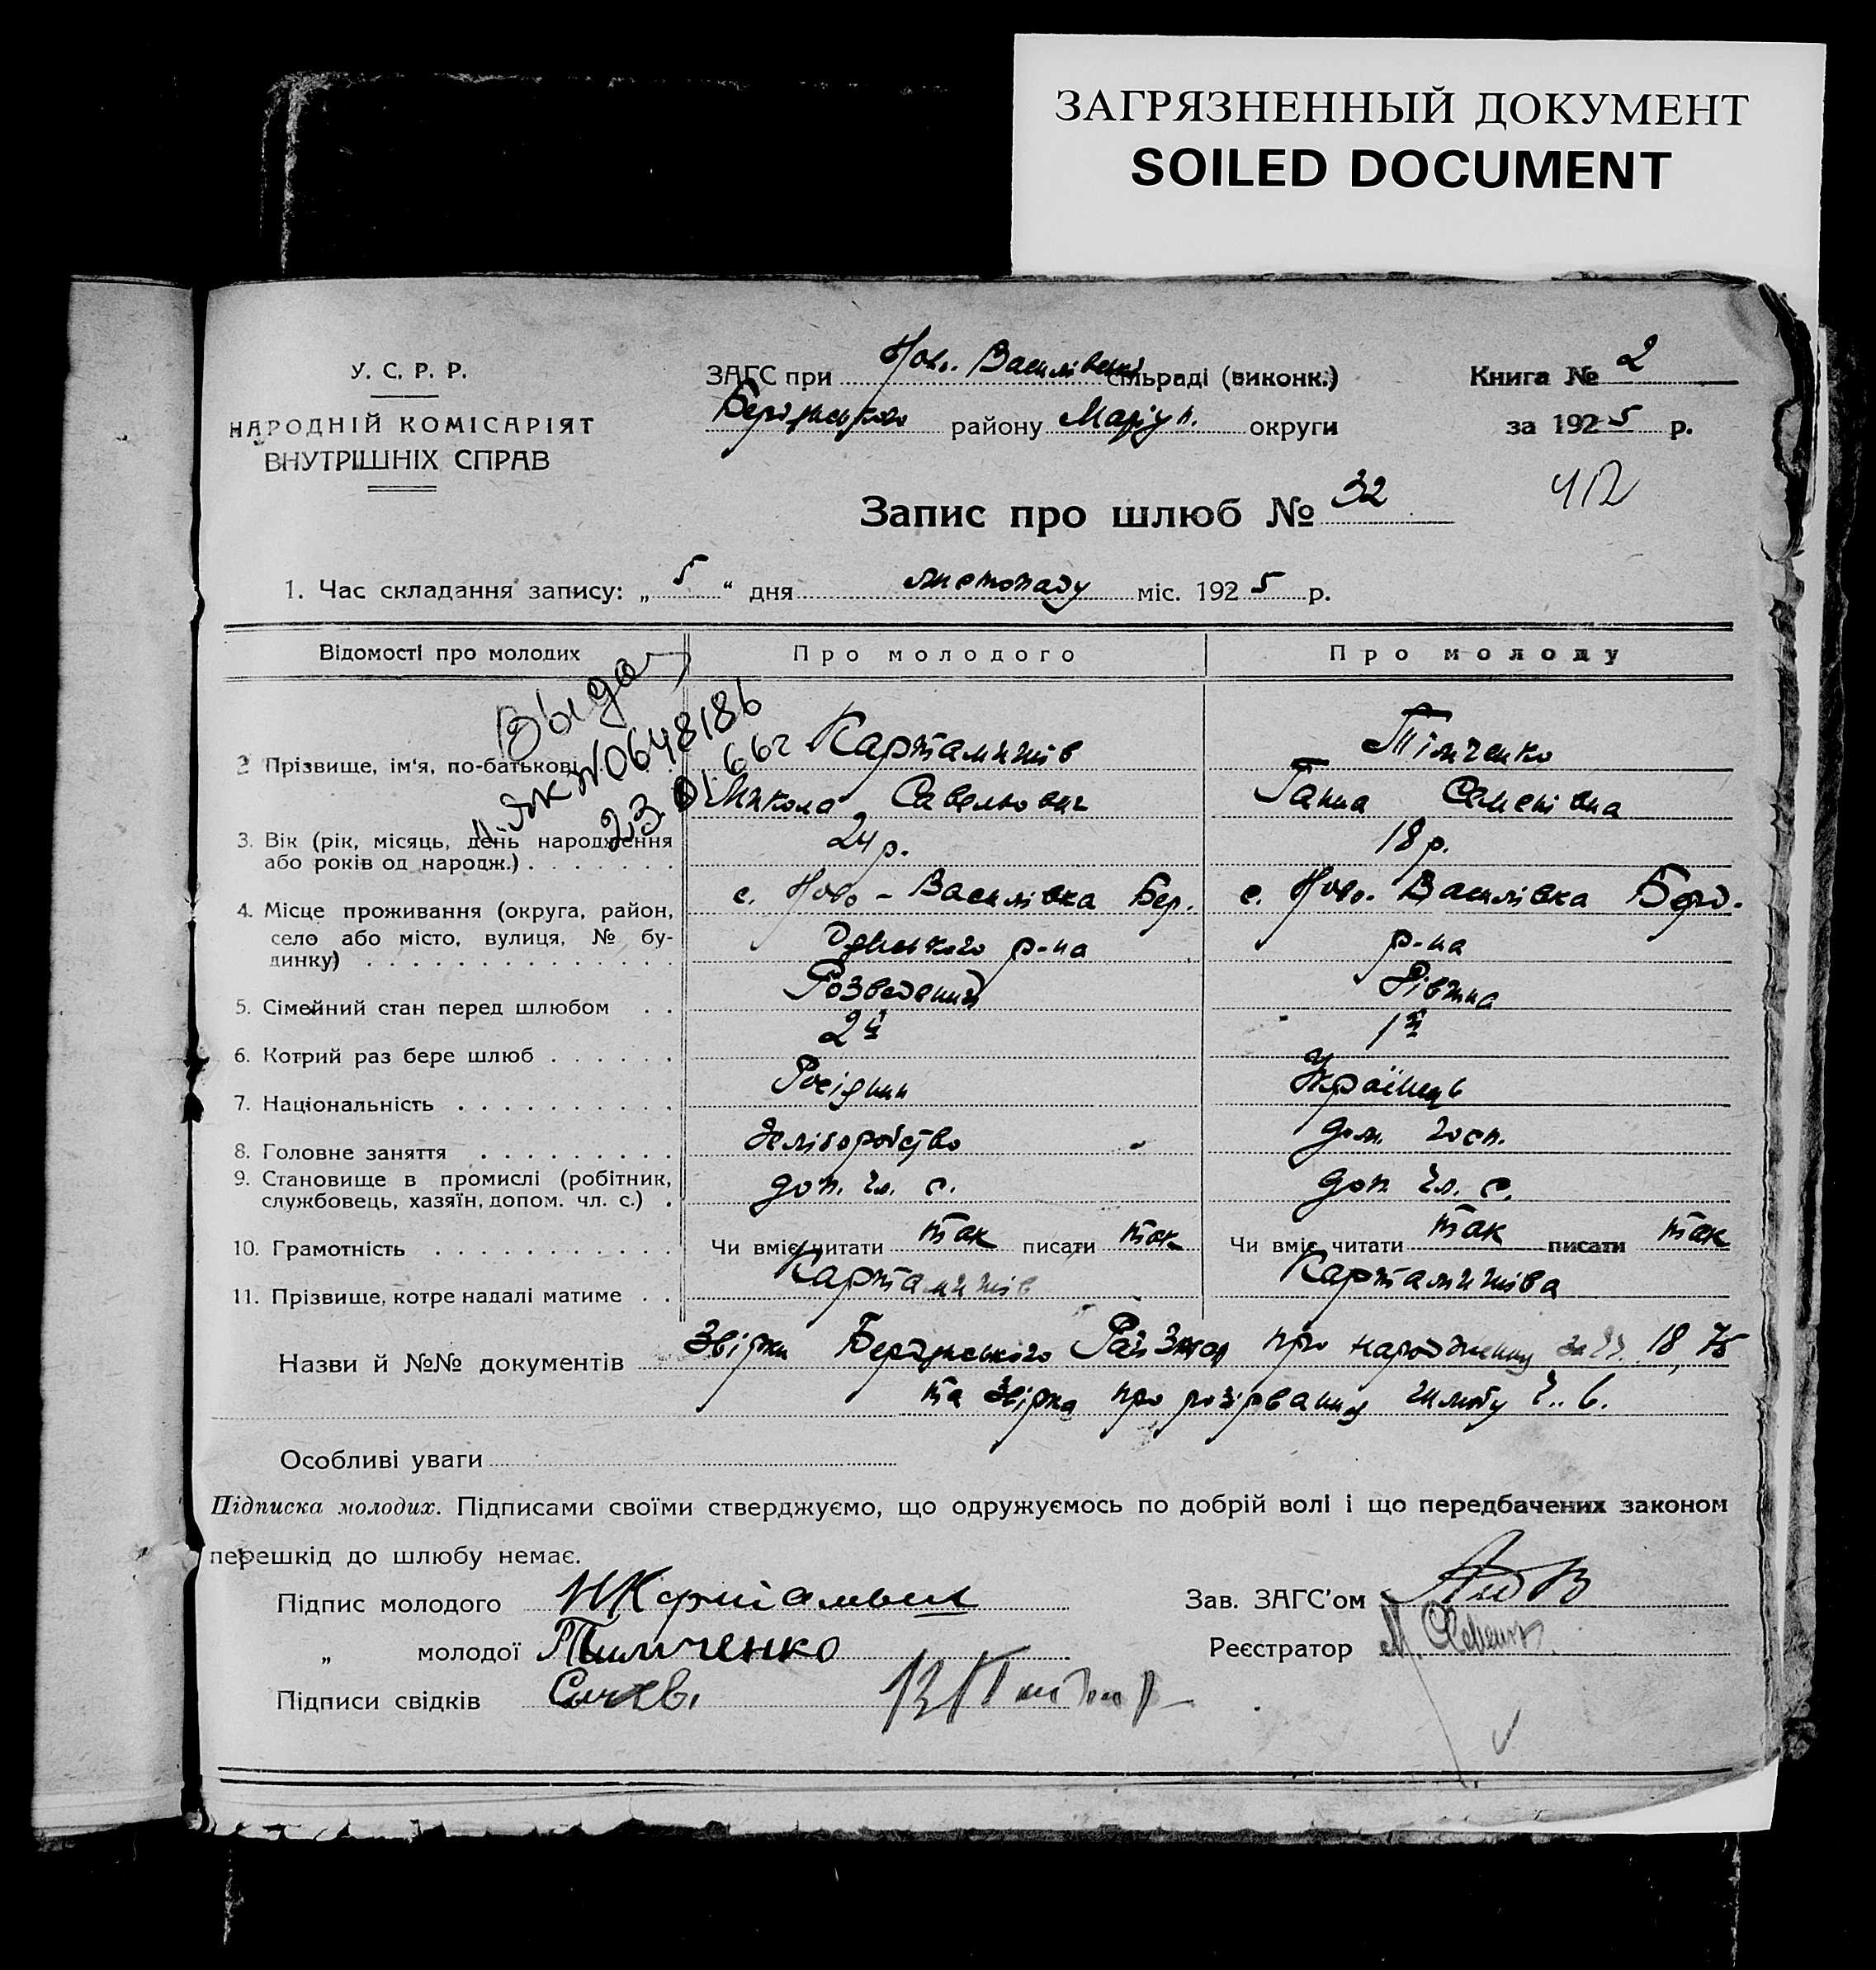 ЗАГРЯЗНЕННЫЙ ДОКУМЕНТ
SOILED DOCUMENT
У. С. Р. Р.
НАРОДНІЙ КОМІСАРІЯТ
ВНУТРІШНІХ СПРАВ
ЗАГС при Ново. Василівські сільраді (виконк.)
Бердянського району Маріуп. округи
Книга № 2
за 1925 р.
412
Запис про шлюб № 32
1. Час складання запису: „ 5 “ дня листопаду міс. 1925 р.
Відомості про молодих Про молодого Про молоду
Выдан
№ 0648186
23.01.66г
2 Прізвище, ім‘я, по-батькові Карталишів Тімченко
Микола Савельович Ганна Семенівна
3. Вік (рік, місяць, день народження або років од народж.) 24 р. 18 р.
4. Місце проживання (округа, район, село або місто, вулиця, № будинку) с. Ново-Василівка Бер. с. Ново. Василівка Берд.
дянського р-на р-на
5. Сімейний стан перед шлюбом Розведений Дівчина
6. Котрий раз бере шлюб 2й 1й
7. Національність Росіянин Українець
8. Головне заняття Хліборобство дом. госп.
9. Становище в промислі (робітник, службовець, хазяїн, допом. чл. с.) доп. чл. с. доп чл. с.
10. Грамотність Чи вміє читати так писати так Чи вміє читати так писати так
11. Прізвище, котре надалі матиме Карталишів Карталишіва
Назви й №№ документів Звідки Бердянського про народження за 18, 75
та звідка про розірвання шлюбу ч. 6.
Особливі уваги
Підписка молодих. Підписами своїми стверджуємо, що одружуємось по добрій волі і що передбачених законом
перешкід до шлюбу немає.
Підпис молодого
Зав. ЗАГС'ом
„ молодої Тимченко
Реєстратор
Підписи свідків